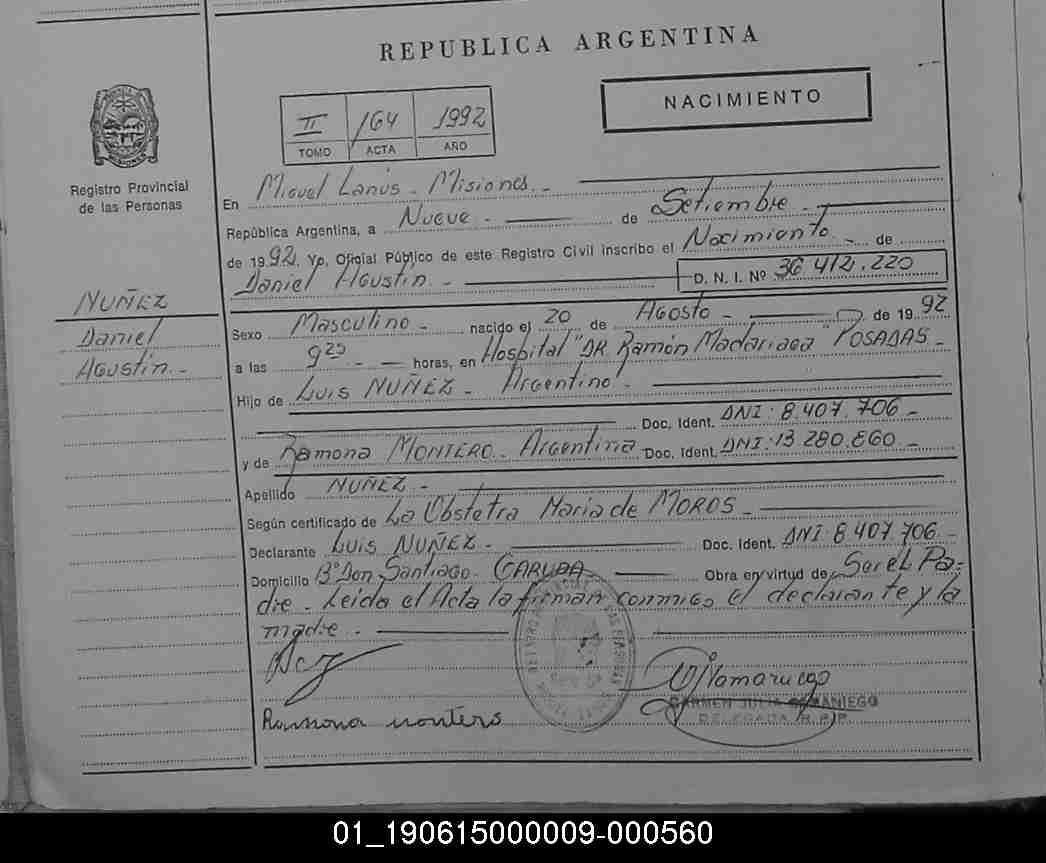 REPUBLICA ARGENTINA
NACIMIENTO
II /164 1992
TOMO ACTA AÑO
Registro Provincial
de las Personas
En Miguel Lanús - Misiones -
República Argentina, a Nueve - de Setiembre -
de 1992. Yo, Oficial Público de este Registro Civil inscribo el Nacimiento - de
Daniel Agustín - D. N. I. Nº 36.412.220
NUÑEZ
Daniel
Agustín -
Sexo Masculino - nacido el 20 de Agosto - de 1992
a las 9 25 - horas, en Hospital "DR. Ramón Madariaga" POSADAS -
Hijo de Luis NUÑEZ - Argentino -
Doc. Ident. DNI: 8.407.706 -
y de Ramona MONTERO - Argentina - Doc. Ident. DNI: 13.280.860 -
Apellido NUÑEZ -
Según certificado de La Obstetra Maria de MOROS -
Declarante LUIS NUÑEZ - Doc. Ident. DNI 8.407.706 -
Domicilio Bº Don Santiago - GARUPA Obra en virtud de Ser el Pa-
dre - Leida el Acta la firman conmigo el declarante y la
madre -
Ramona montero
CARMEN JULIA SAMANIEGO
DELEGADA R.P.P.
01_190615000009-000560